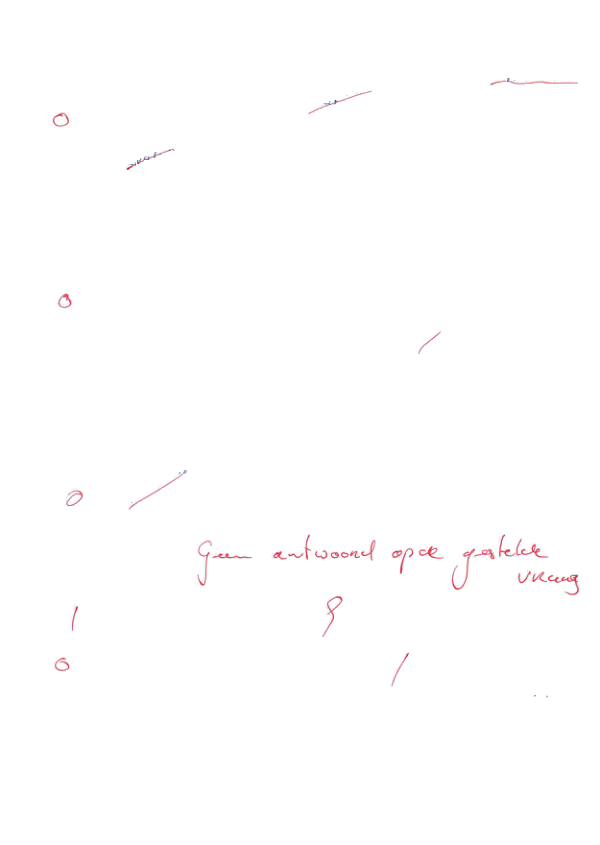 0
0
0
Geen antwoord op de gestelde
vraag
1
0